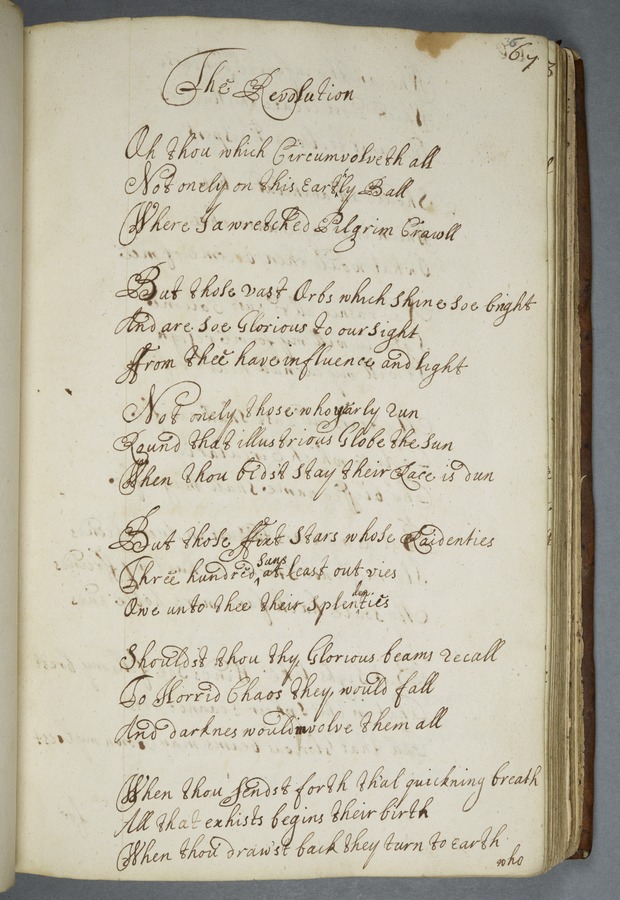 67
The Revolution
Oh thou which Circumvolveth all
Not onely on this Earthly Ball
Where I a wretched Pilgrim Crawll
But those vast Orbs which shine soe bright
And are soe Glorious to our sight
ffrom thee have influence and light
Not onely those who yearly run
Round that illustrious Globe the Sun
When thou bidst stay their Race is dun
But those ffixt Stars whose Raidenties
Three hundred Suns at least out vies
Owe unto thee their Splendencies
Shouldst thou thy Glorious beams recall
To Horrid Chaos they would fall
And darknes would involve them all
When thou sendst forth th'al quickning breath
All that exhists begins their birth
When thou draw'st back they turn to Earth
who